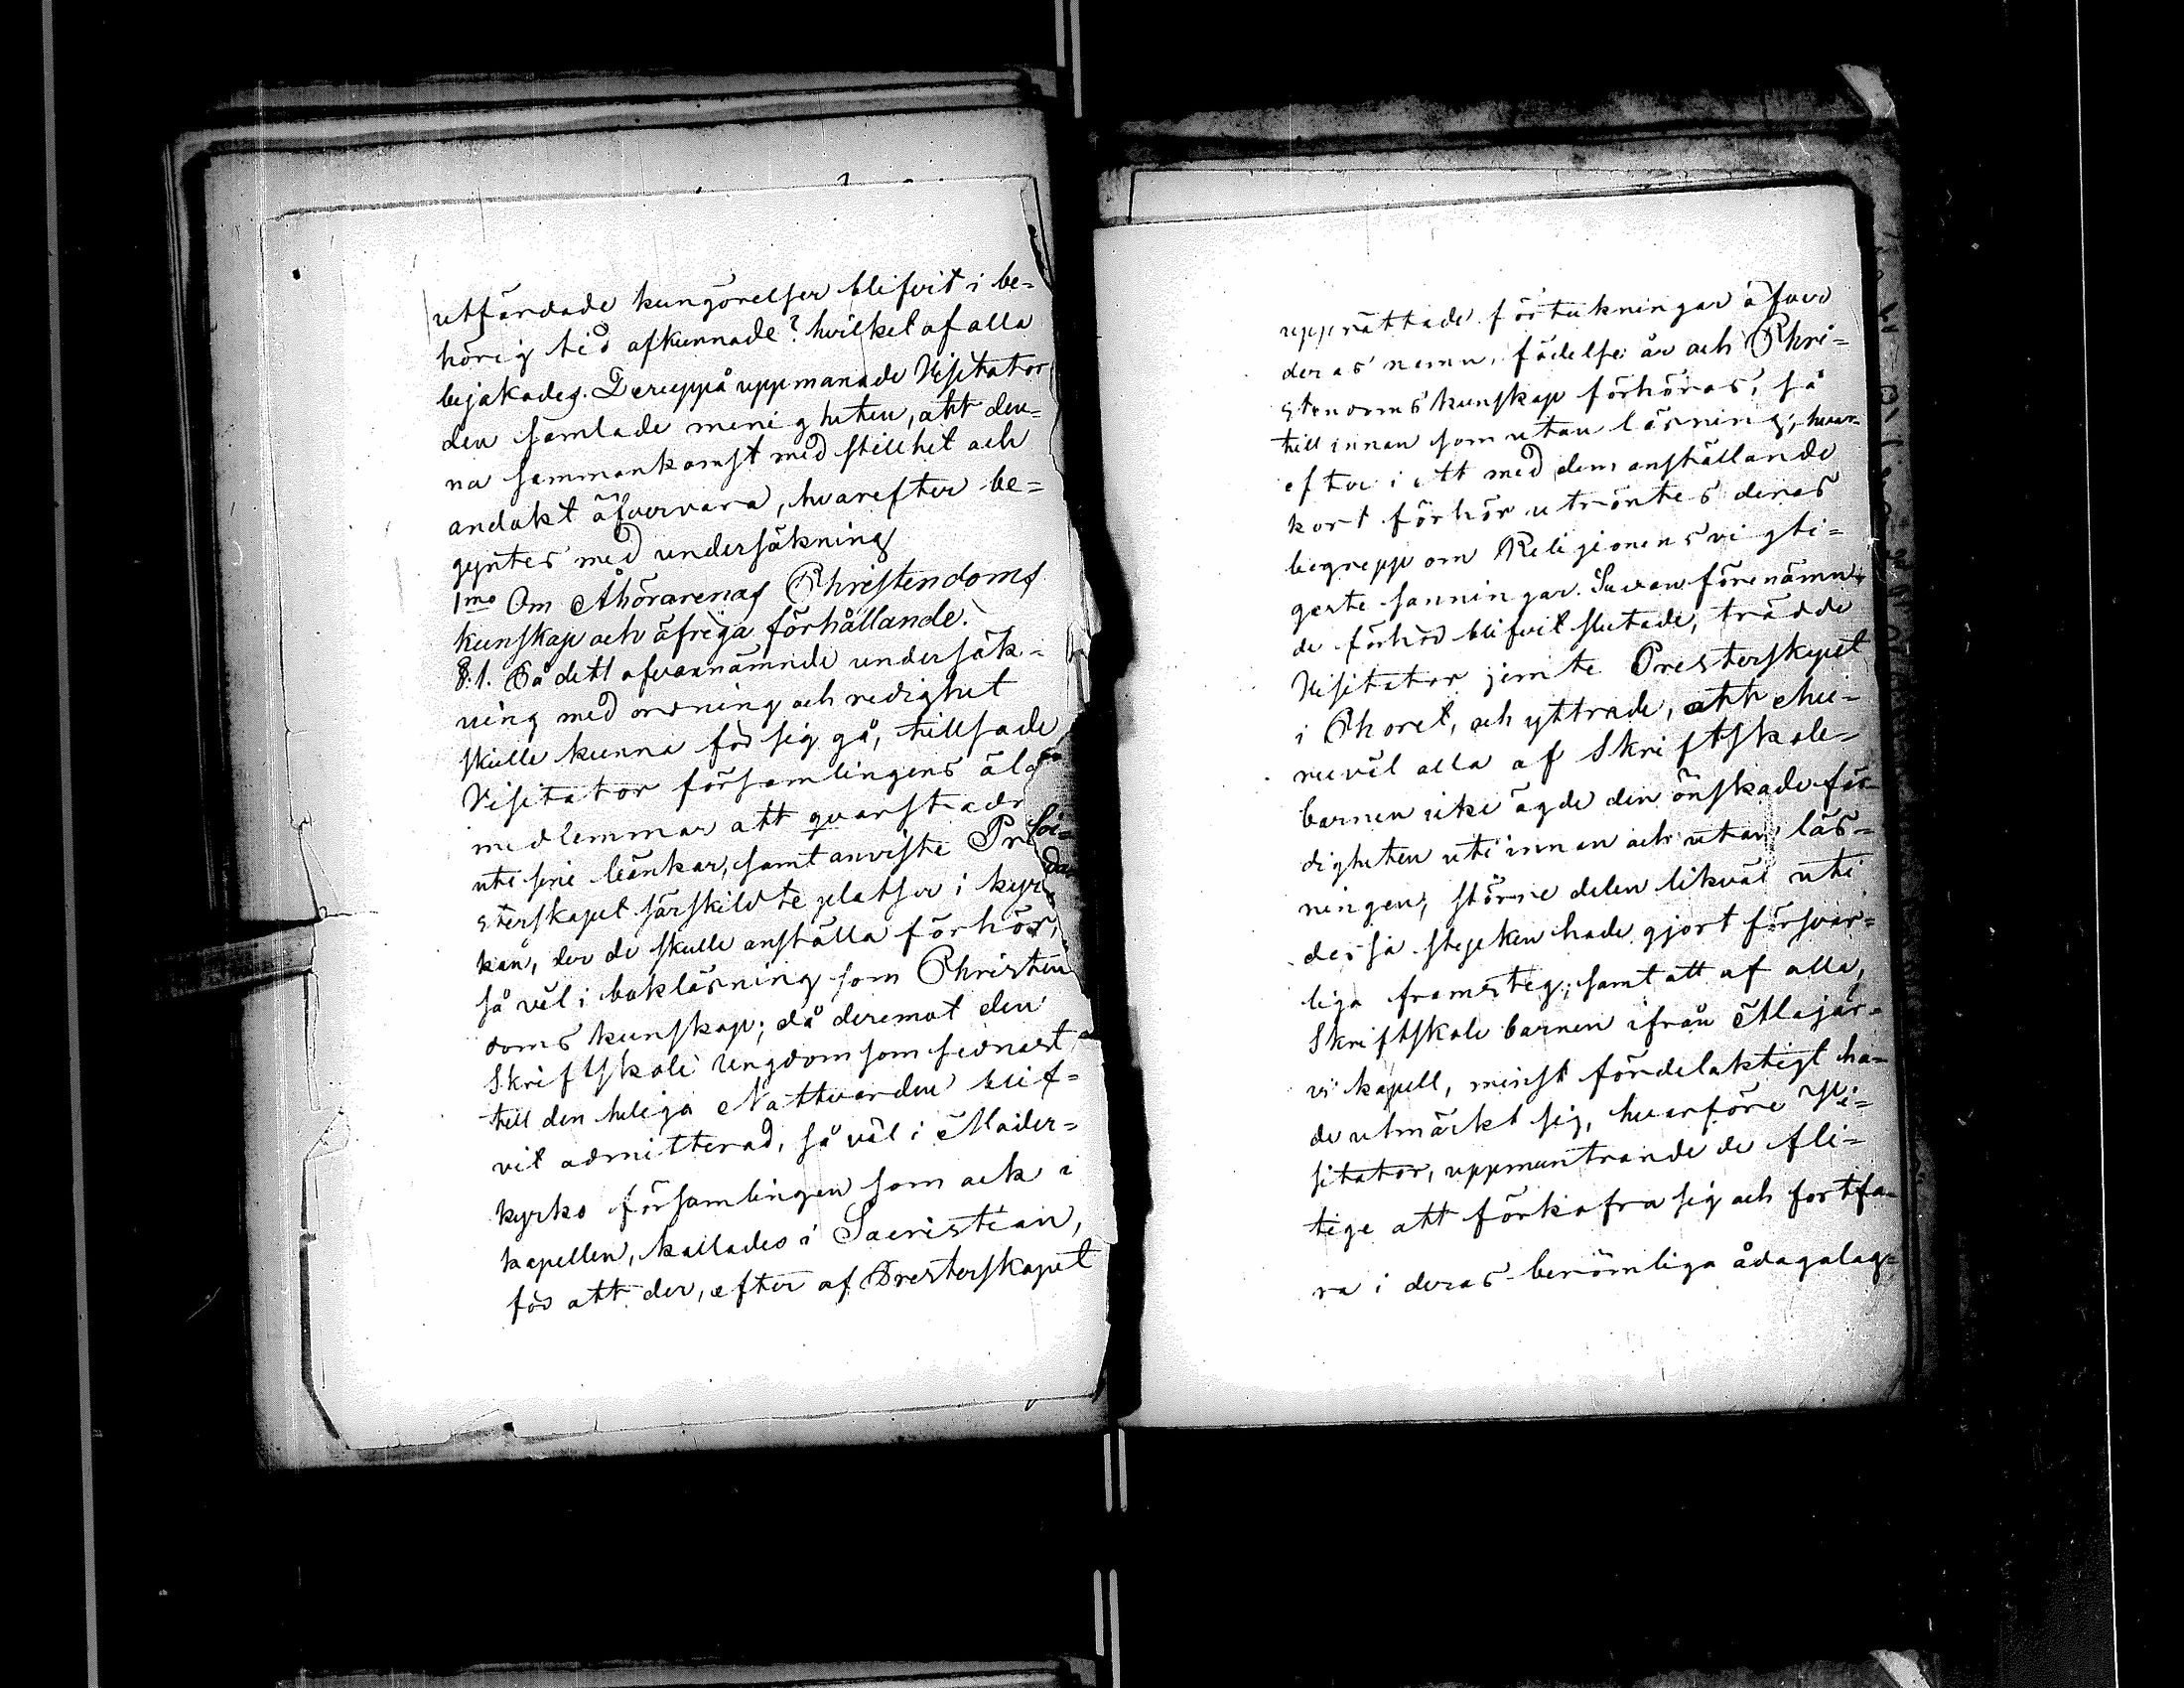 utfärdade kungörelser blifvit i be=
hörig tid afkunnade? hvilket af alla
bejakades. Deruppå uppmanade Visitator
den samlade menigheten, att den=
na sammankomst med stillhet och
andakt öfvervara, hvarefter be=
gyntes med undersökning
1mo Om Åhörarenas Christendoms
kunskap och öfriga förhållande.
§. 1. På det1 ofvannämnde undersök=
ning med ordning och redighet
skulle kunna för sig gå, tillsade
Visitator församlingens äld
medlemmar att qvarstad
uti sine bänkar, samt anviste Pre
sterskapet särskildte platser i kyr
kan, der de skulle anställa förhör,
så väl i bokläsning som Christen
doms kunskap; då deremot den
Skriftskole Ungdom som sednast
till den heliga Nattvarden blif=
vit admitterad, så väl i Moder=
kyrko församlingen som ock i
kapellen, kallades i Sacristian,
för att der, efter af Presterskapet
upprättade förtekningar öfver
deras namn, födelse år och Chri=
stendoms kunskap förhöras, så
till innan som utan läsning; hvar=
efter i ett med dem anställande
kort förhör utröntes deras
begrepp om Religionens vigti=
gaste sanningar. Sedan förenämn=
de förhör blifvit slutade, trädde
Visitator jemte Presterskapet
i Choret, och yttrade, att ehu=
ruväl alla af Skriftskole=
barnen icke ägde den önskade fär=
digheten uti innan och utan läs=
ningen, större delen likväl uti
dessa stycken hade gjort försvar=
liga framsteg, samt att af alla,
Skriftskole barnen ifrån Majär=
vi kapell, minst fördelaktigt ha=
de utmärkt sig, hvarföre Vi=
sitator, uppmuntrande de fli=
tige att förkofra sig och fortfa=
ra i deras berömliga ådagalag=